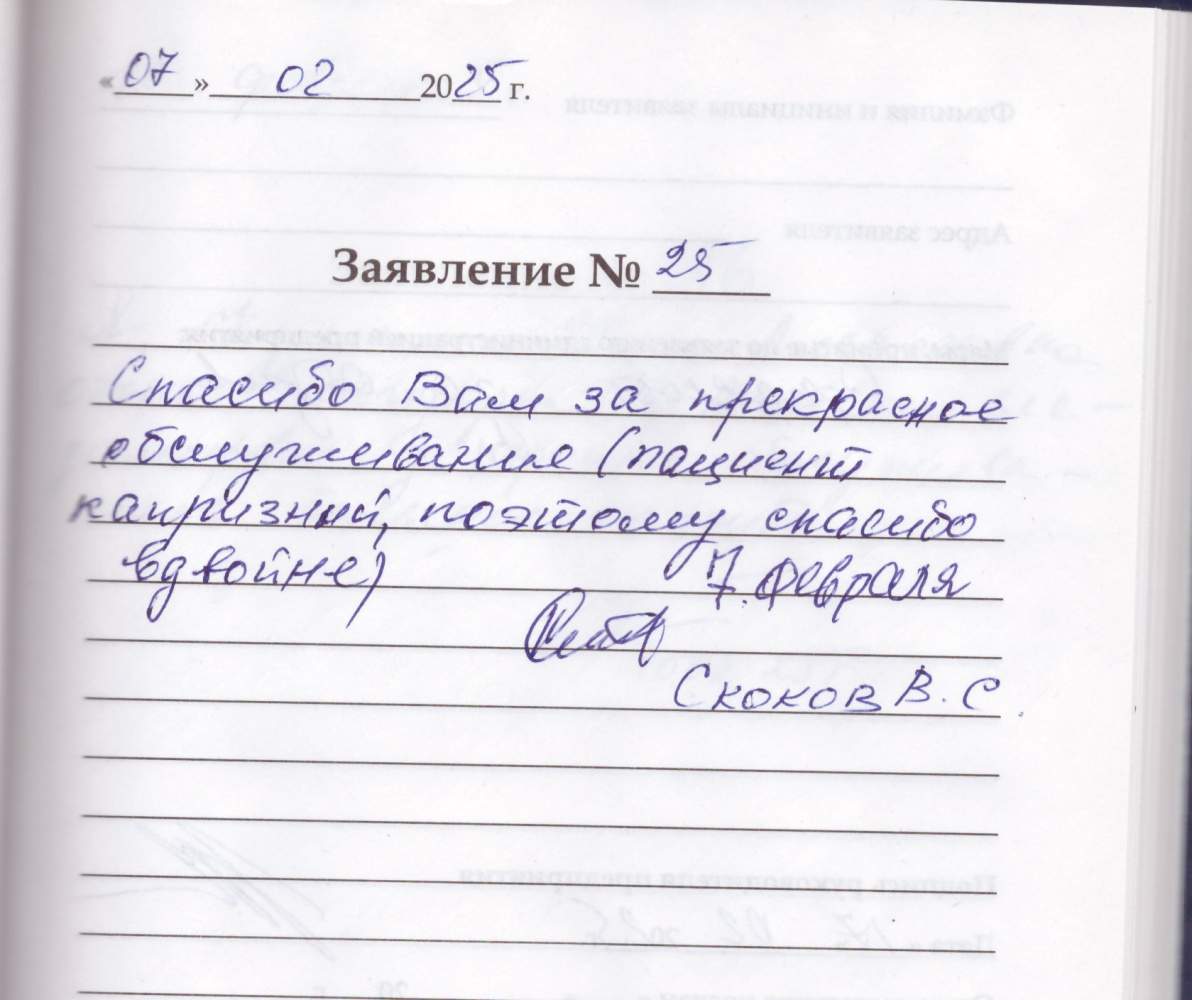 «07» 02 2025 г.
Заявление № 25
Спасибо Вам за прекрасное
обслуживание (пациент
капризный, поэтому спасибо
вдвойне)
7. февраля
Скоков В. С.